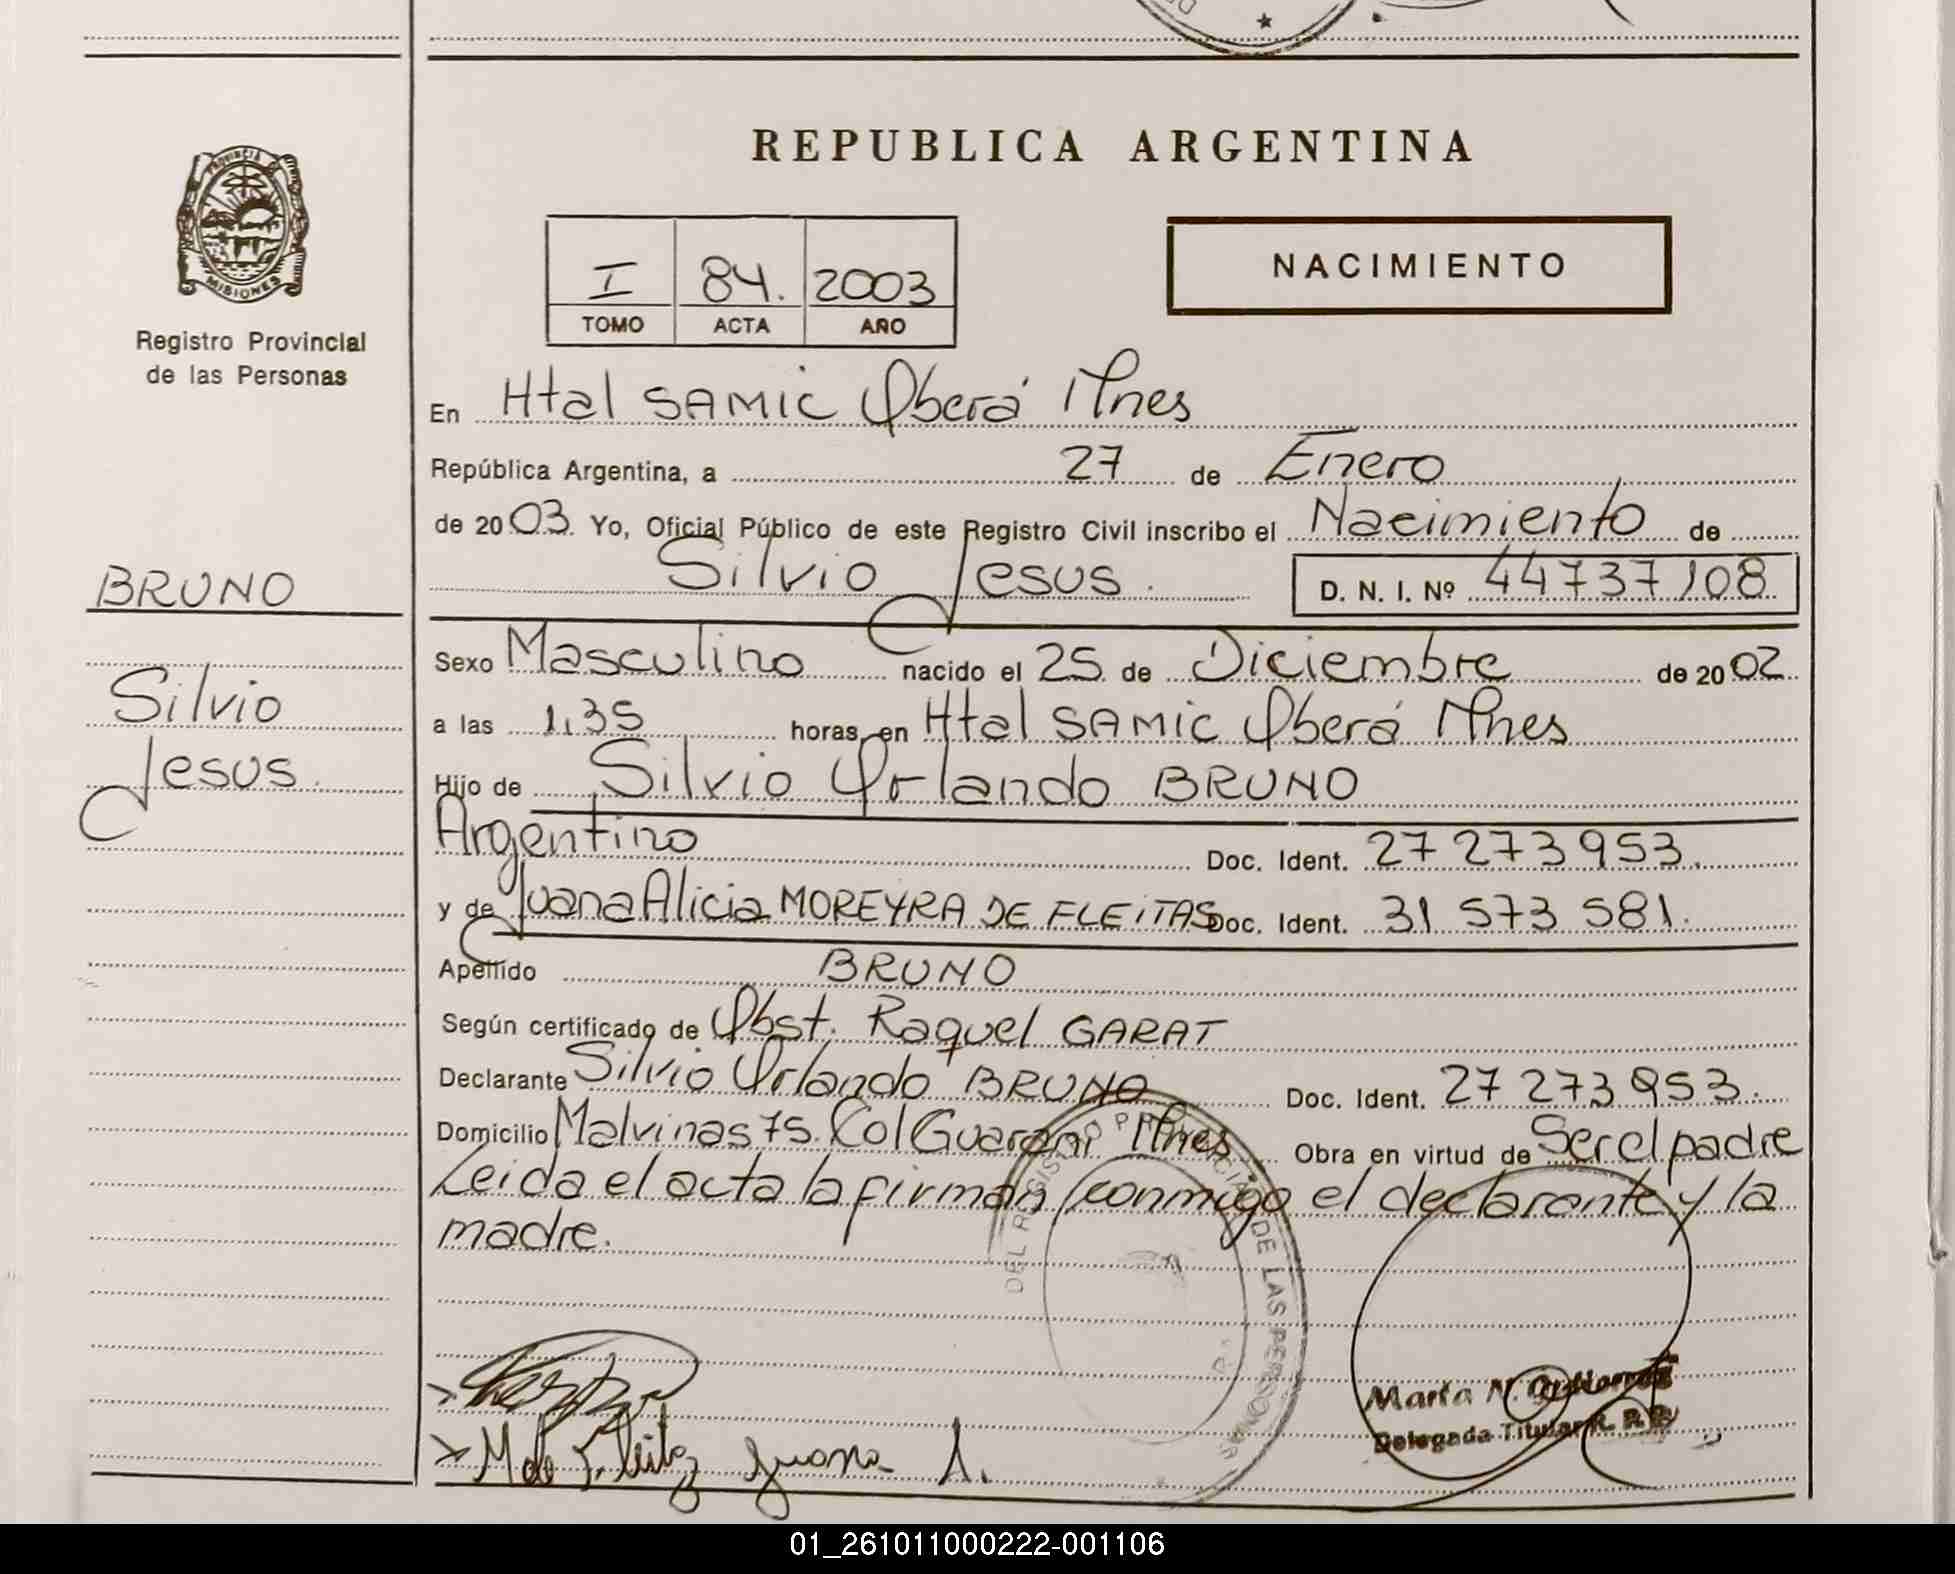 REPUBLICA ARGENTINA
PROVINCIA DE
MISIONES
Registro Provincial
de las Personas
I 84. 2003
TOMO ACTA AÑO
NACIMIENTO
En Htal SAMIC Oberá Mnes
República Argentina, a 27 de Enero
de 2003. Yo, Oficial Público de este Registro Civil inscribo el Nacimiento de
Silvio Jesus. D. N. I. Nº 44737108
BRUNO
Silvio
Jesus.
Sexo Masculino nacido el 25 de Diciembre de 2002
a las 1,35 horas, en Htal SAMIC Oberá Mnes
Hijo de Silvio Orlando BRUNO
Argentino Doc. Ident. 27 273 953.
y de Juana Alicia MOREYRA DE FLEITAS Doc. Ident. 31 573 581.
Apellido BRUNO
Según certificado de Obst. Raquel GARAT
Declarante Silvio Orlando BRUNO Doc. Ident. 27 273 953.
Domicilio Malvinas 75. Col Guarani Mnes Obra en virtud de Ser el padre
Leida el acta la firman conmigo el declarante y la
madre.
DEL REGISTRO PROVINCIAL DE LAS PERSONAS
M de Fleitaz Juana A.
Marta N. Gutierrez
Delegada Titular R. P. P.
01_261011000222-001106